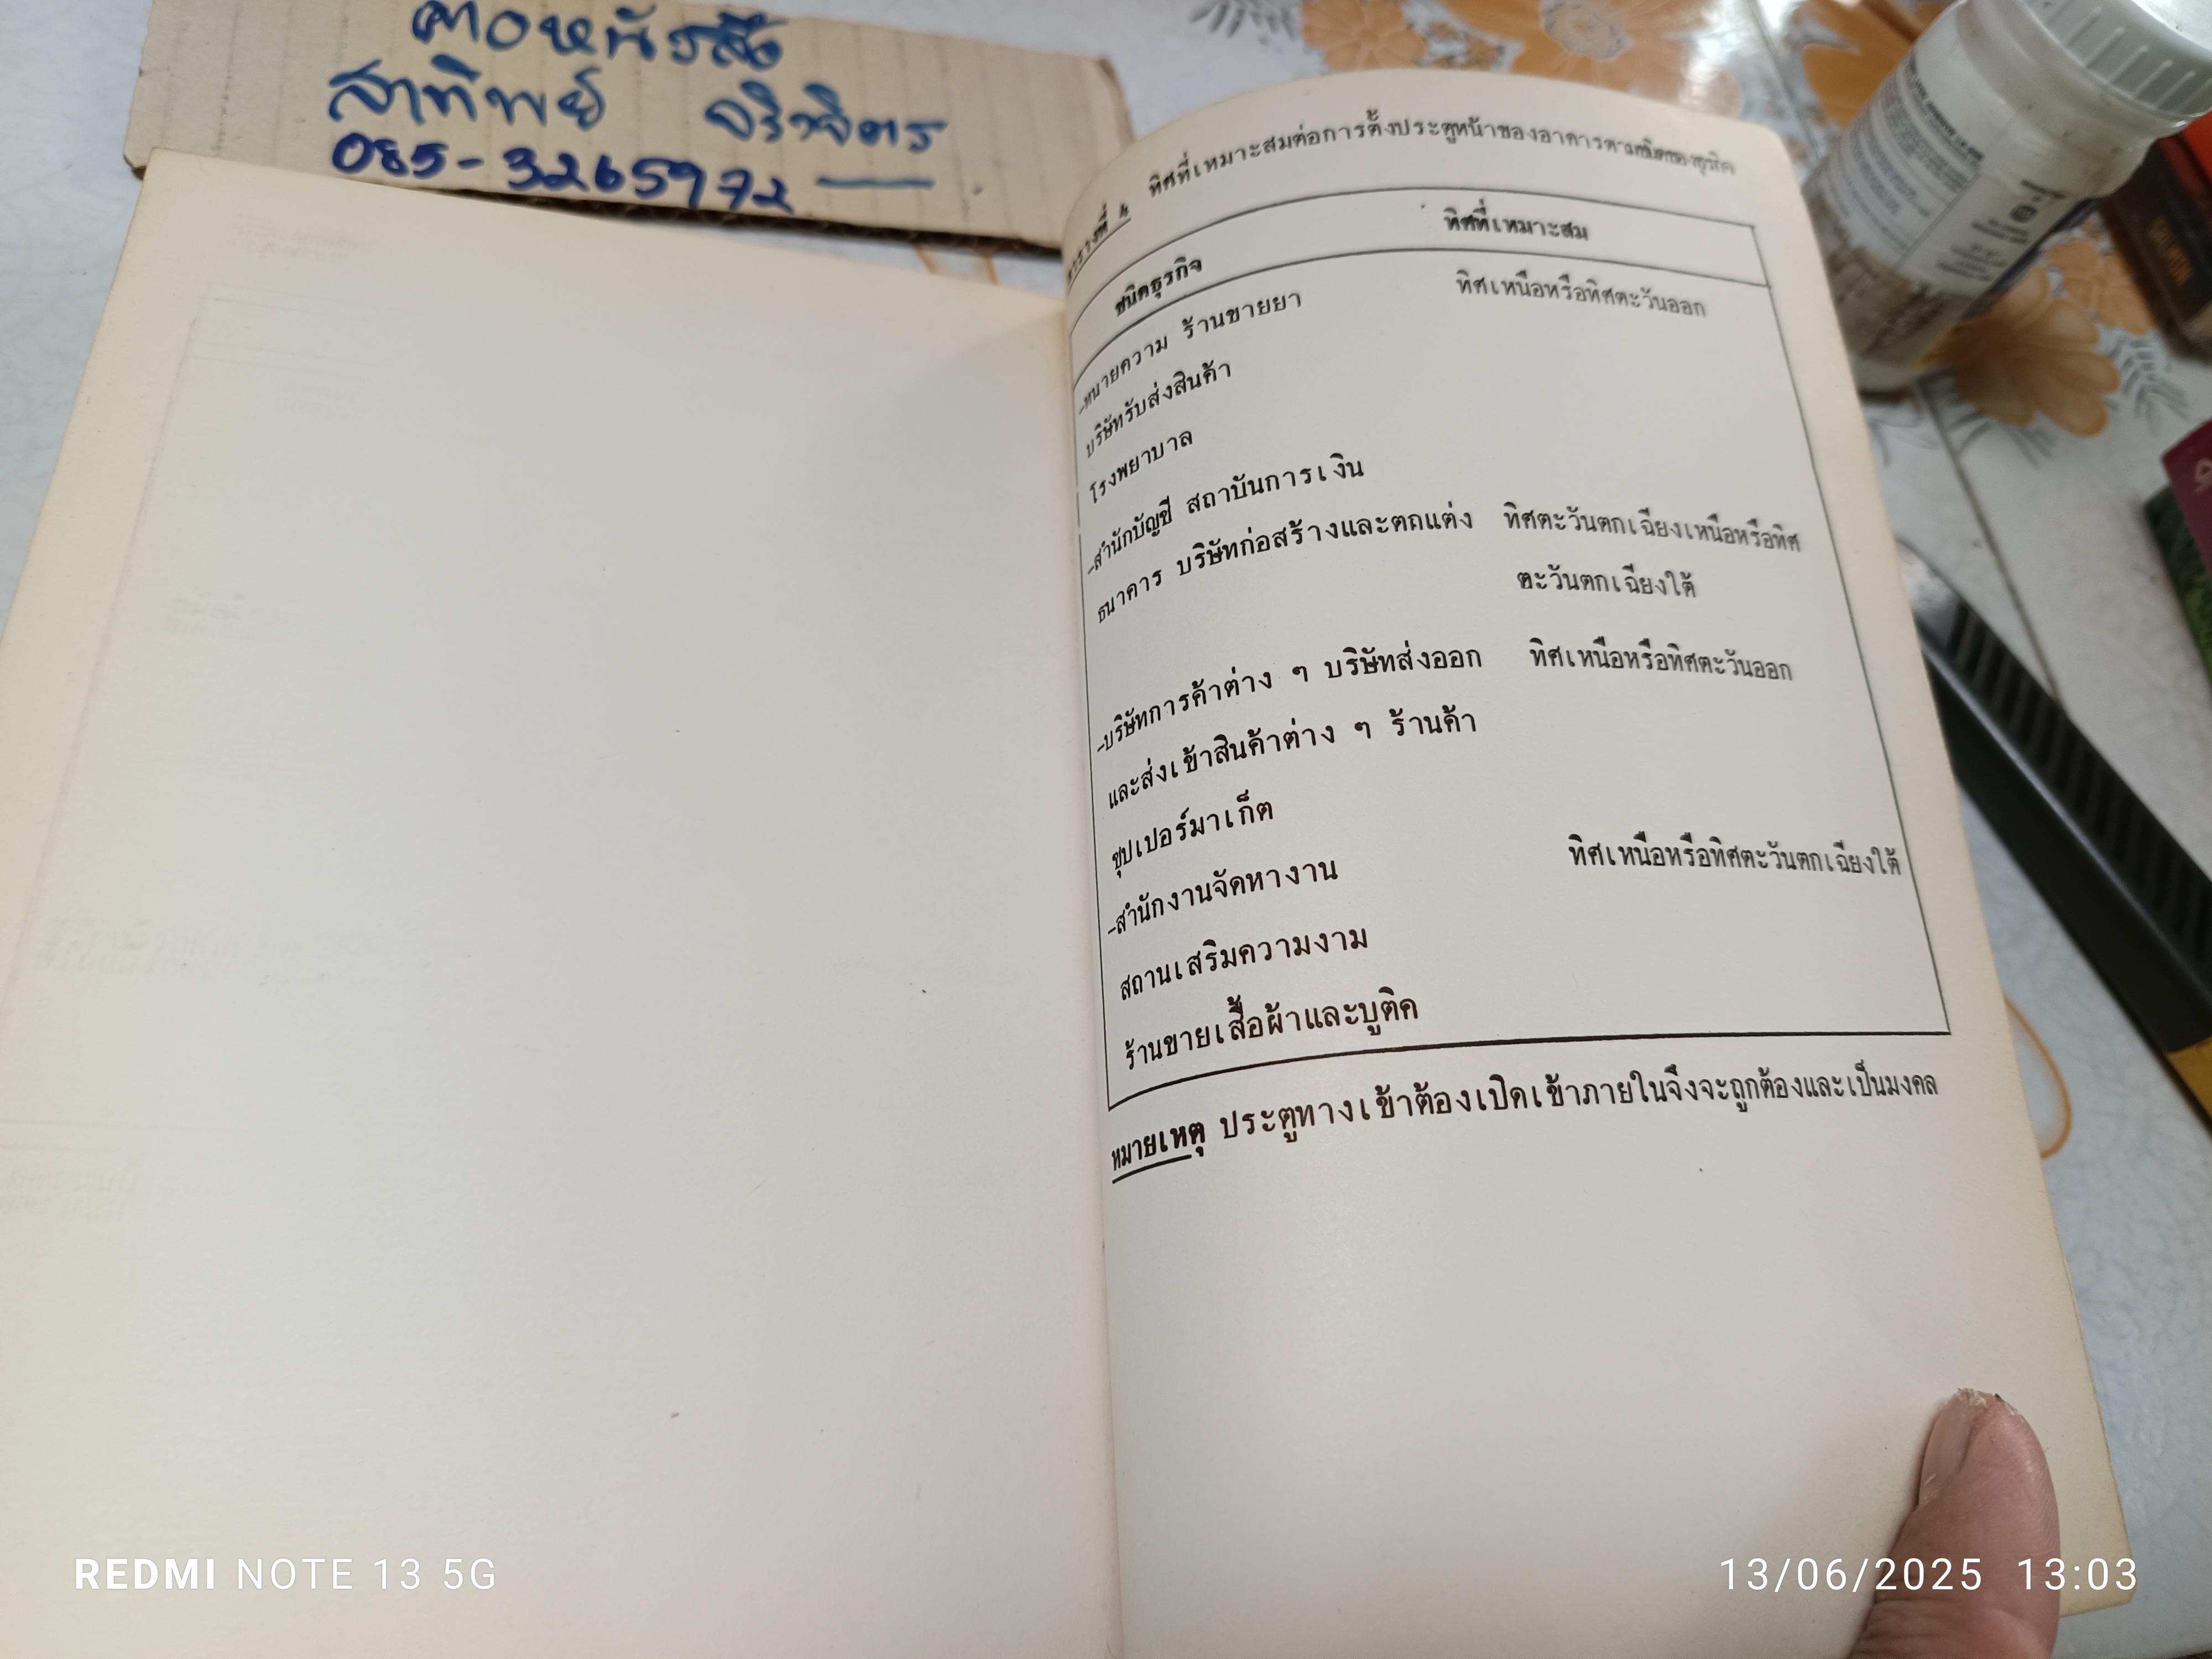 สาทิพย์
085-3265972
ตารางที่ ๒ ทิศที่เหมาะสมต่อการตั้งประตูหน้าของอาคารตามชนิดของธุรกิจ
ชนิดธุรกิจ ทิศที่เหมาะสม
-ทนายความ ร้านขายยา ทิศเหนือหรือทิศตะวันออก
บริษัทรับส่งสินค้า
โรงพยาบาล
-สำนักบัญชี สถาบันการเงิน
ธนาคาร บริษัทก่อสร้างและตกแต่ง ทิศตะวันตกเฉียงเหนือหรือทิศ
ตะวันตกเฉียงใต้
-บริษัทการค้าต่าง ๆ บริษัทส่งออก ทิศเหนือหรือทิศตะวันออก
และส่งเข้าสินค้าต่าง ๆ ร้านค้า
ซุปเปอร์มาเก็ต
-สำนักงานจัดหางาน ทิศเหนือหรือทิศตะวันตกเฉียงใต้
สถานเสริมความงาม
ร้านขายเสื้อผ้าและบูติค
หมายเหตุ ประตูทางเข้าต้องเปิดเข้าภายในจึงจะถูกต้องและเป็นมงคล
REDMI NOTE 13 5G
13/06/2025 13:03